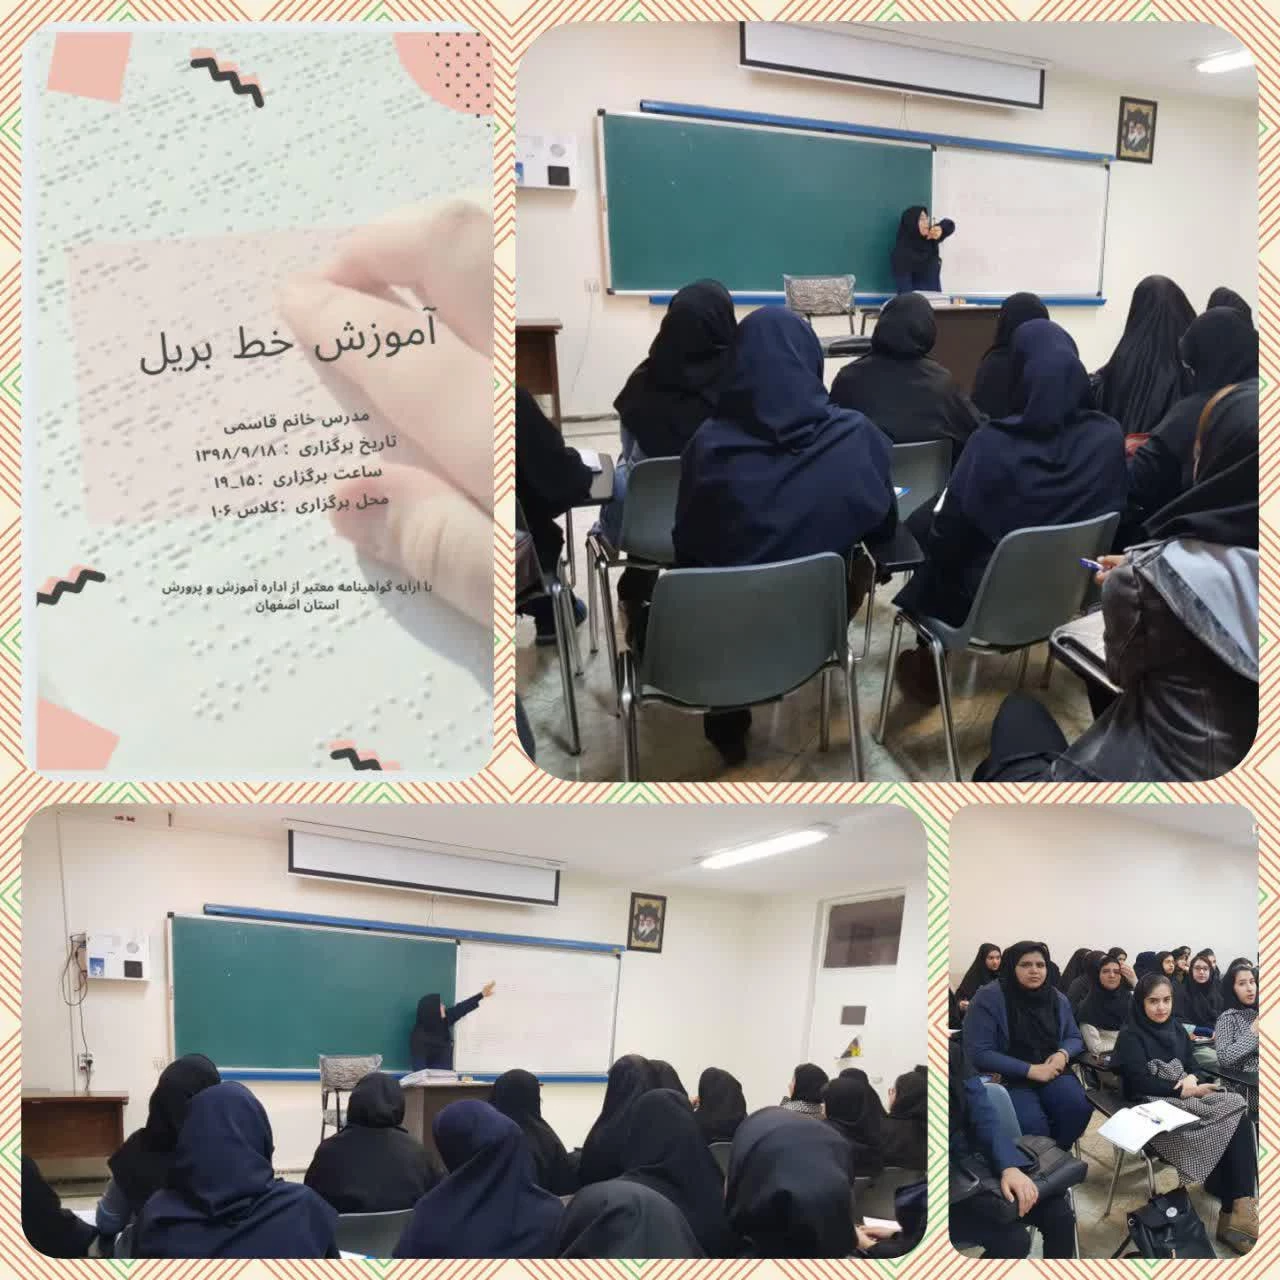 آموزش خط بریل
مدرس خانم قاسمی
تاریخ برگزاری : ۱۳۹۸/۹/۱۸
ساعت برگزاری :۱۵_۱۹
محل برگزاری :کلاس ۱۰۶
با ارایه گواهینامه معتبر از اداره آموزش و پرورش
استان اصفهان